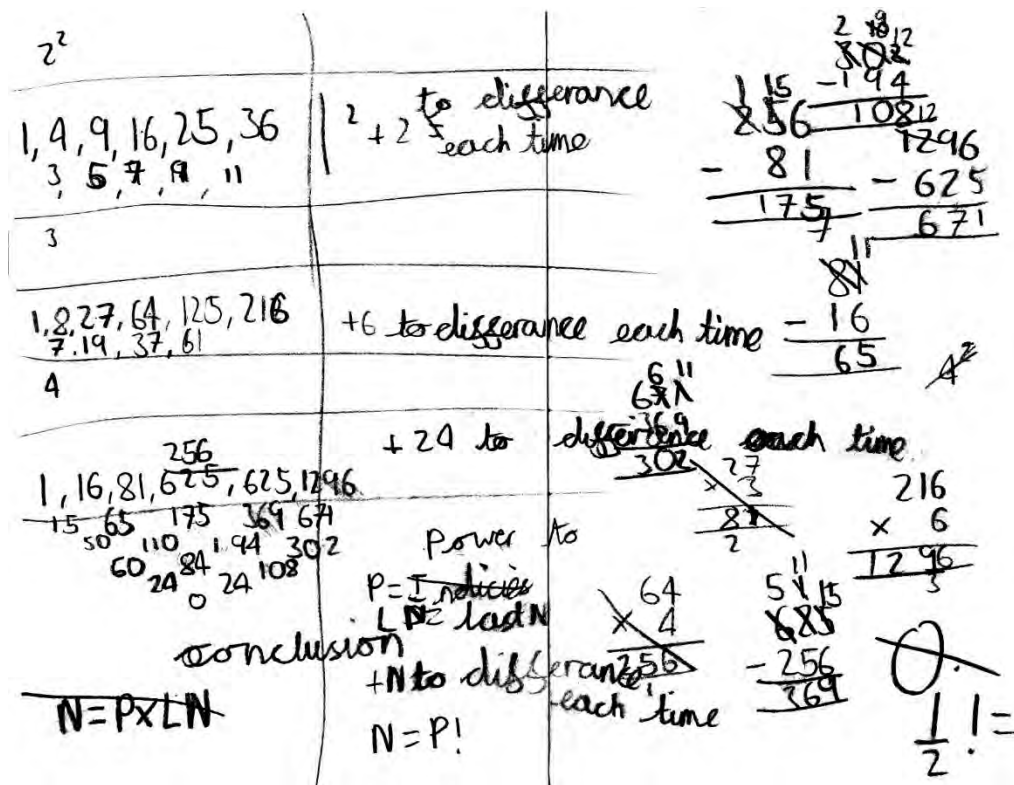 2²
1, 4, 9, 16, 25, 36
3, 5, 7, 9, 11
² +2 to differance
each time
3
1, 8, 27, 64, 125, 216
7, 19, 37, 61
+6 to differance each time
4
+24 to differience each time
256
1, 16, 81, 625, 625, 1296
15 65 175 369 671
50 110 194 302
60 84 108
24 24
0
Power to
P= Indicies
LN= last N
conclusion
+N to differance
each time
N=PxLN
N=P!
2 12
302
-194
108
1 15
256
- 81
175
12
1296
- 625
671
11
81
- 16
65
4²
6 11
671
369
302
27
x 3
81
2
216
x 6
1296
3
64
x 4
256
5 11 15
625
- 256
369
0.
1/2 ! =